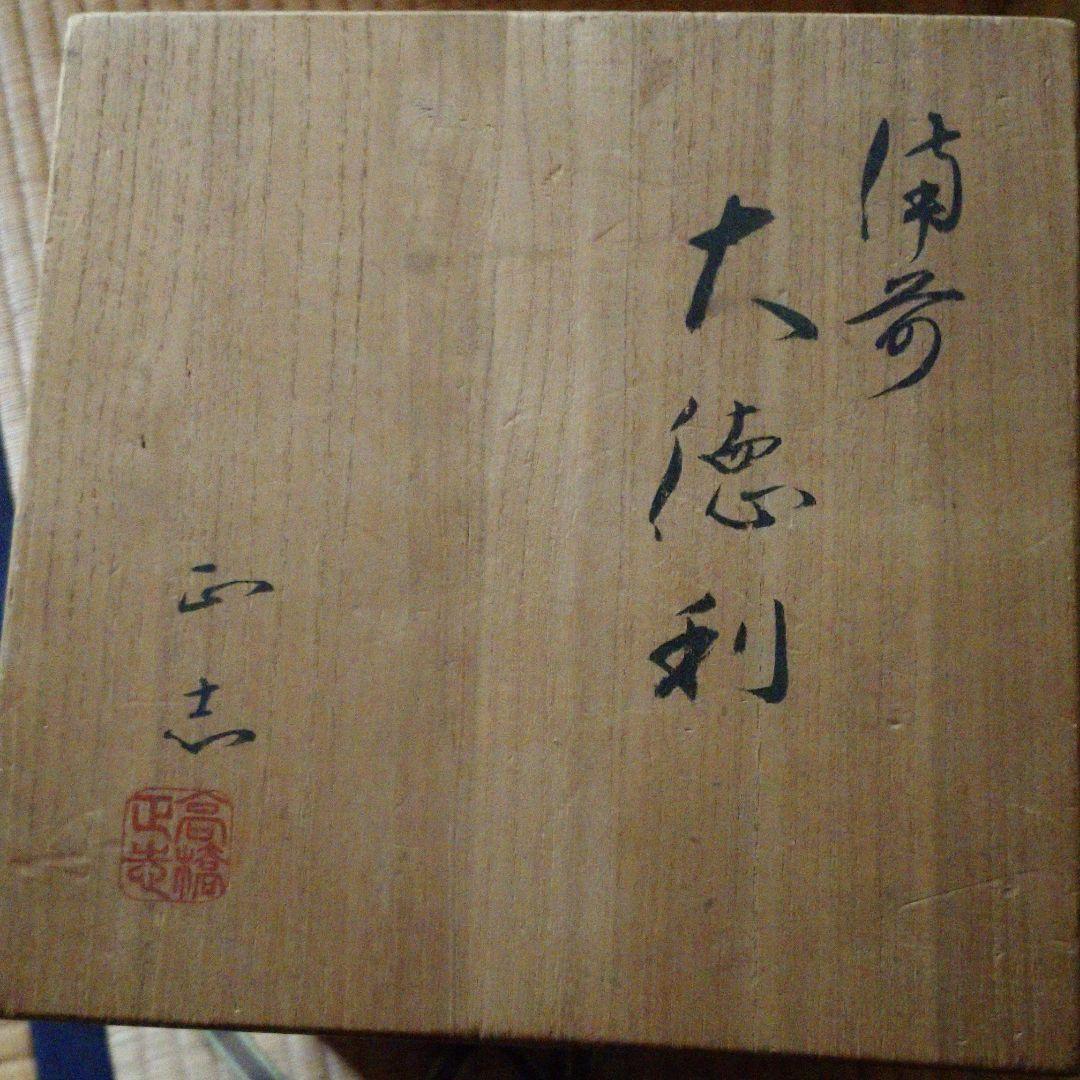 備前
大徳利
正志
高橋
正志